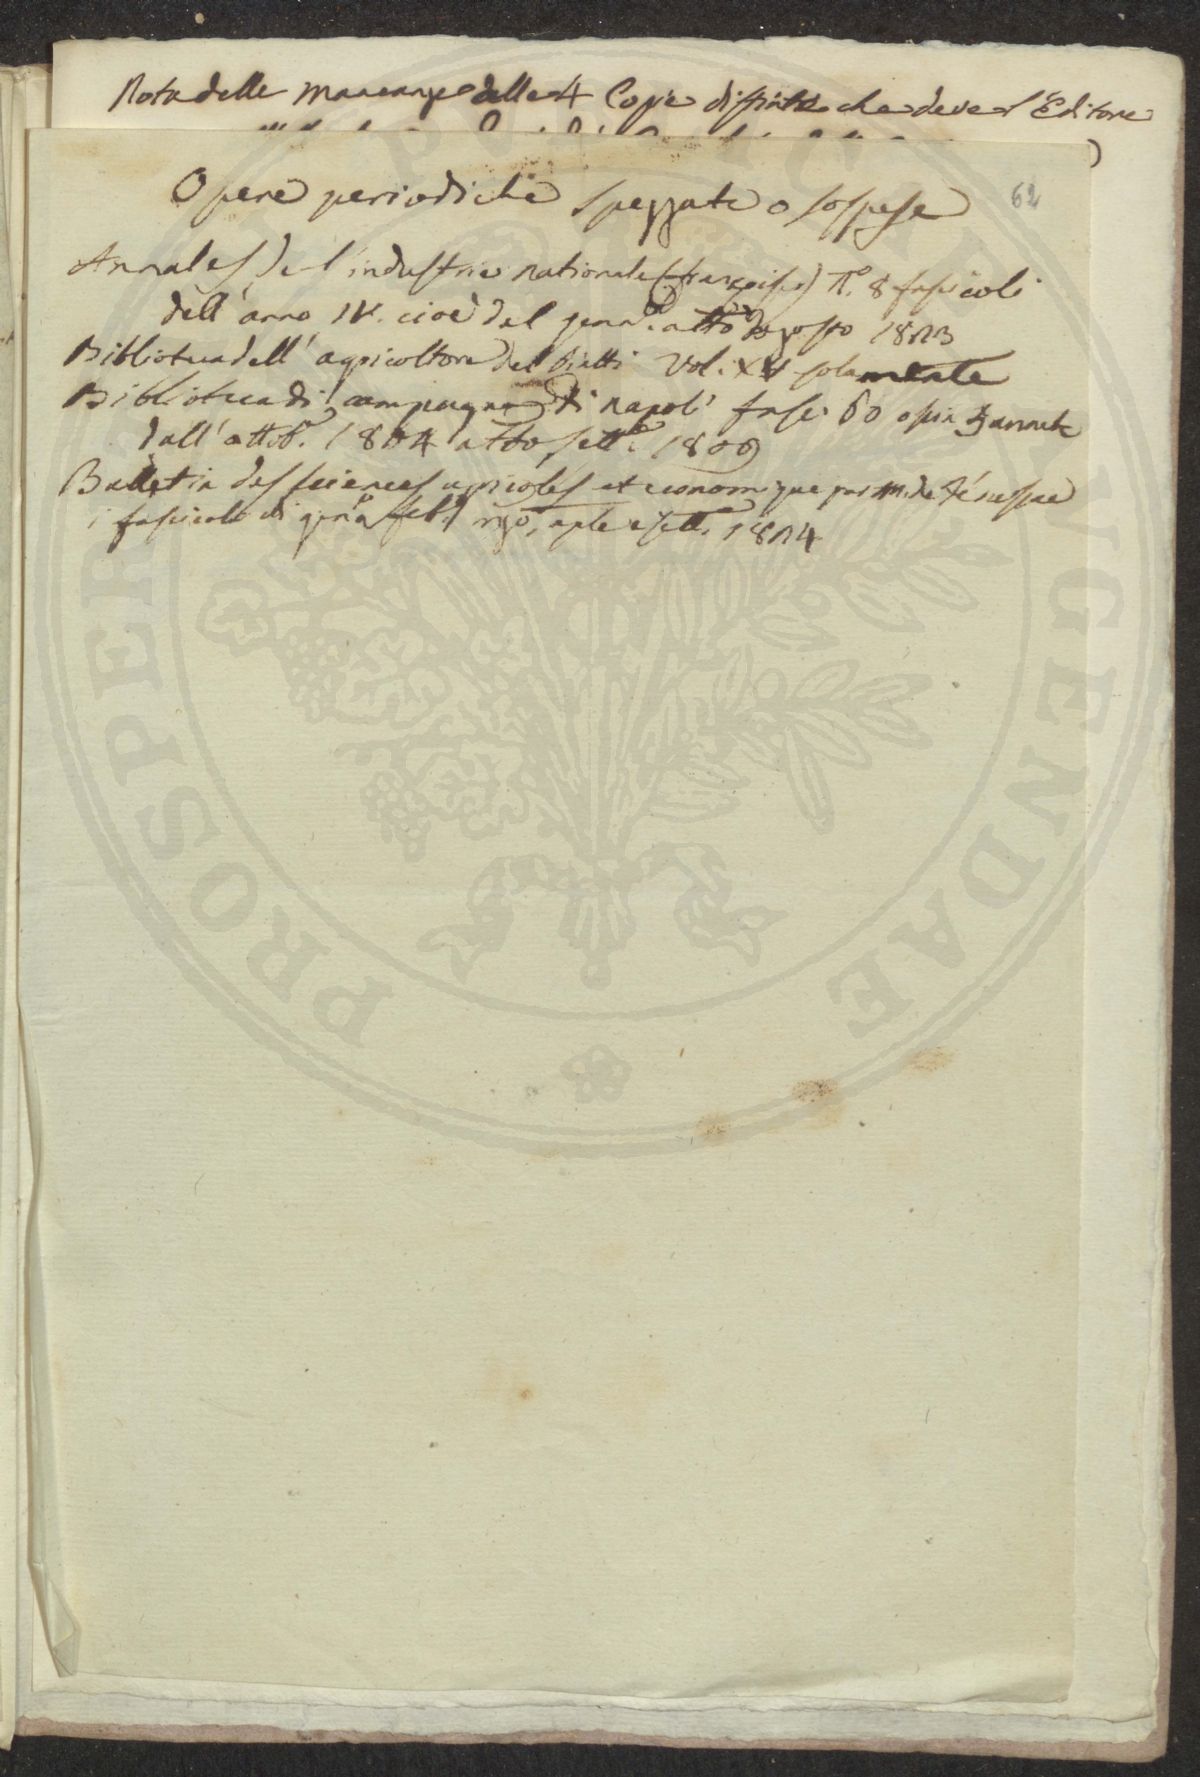 Nota delle mancanze delle 4 Copie distinte che deve l'Editore
Opere periodiche spezzate o sospese
62
Annales de l'industrie nationale (françoise) N.º 8 fascicoli
dell'anno IV. cioè dal genn.º a tto agosto 1823
Biblioteca dell'agricoltore del vol. XV solamente
Biblioteca di campagna di napoli fasc. 60 o sia 5 annate
dall'ottob.e 1804 a tto sett.e 1809
Bulletin des sciences agricoles et economique par m. de
i fascicoli di genn.º feb.º mgo, aple e sett.e 1824
PROSPERITATI PUBLICAE AUGENDAE